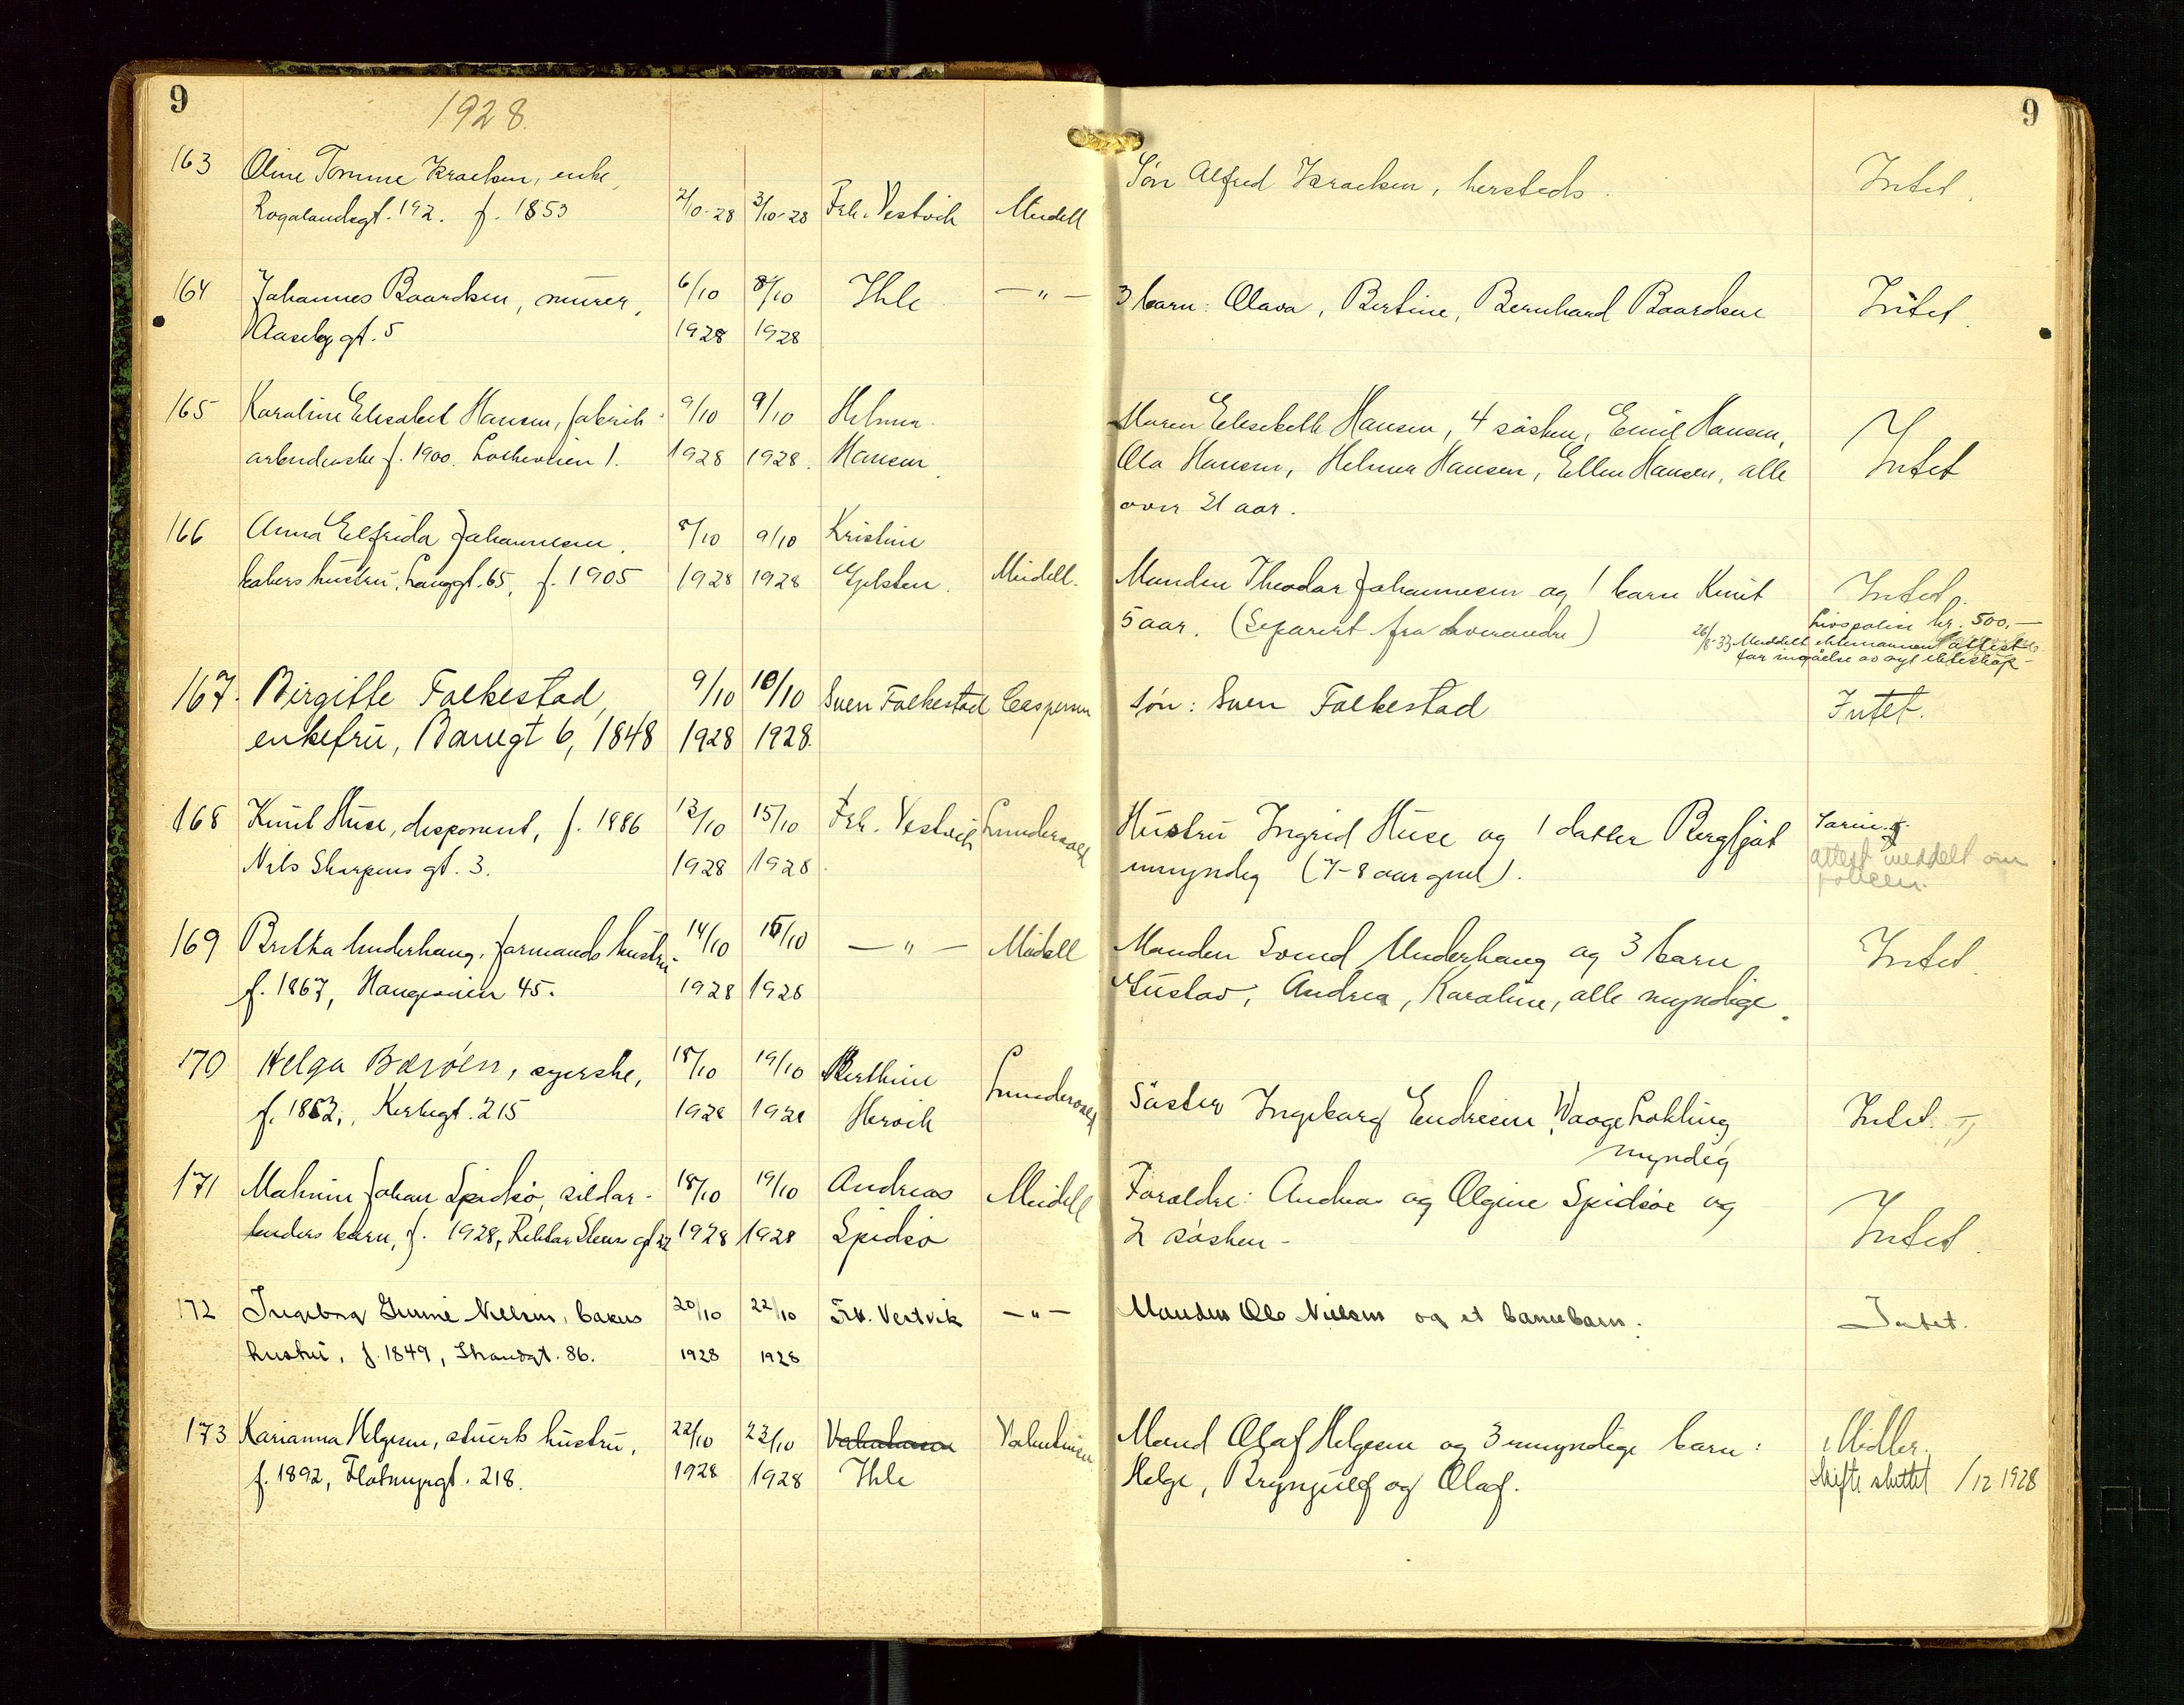 9
1928.
9
163 Oline Tomine Isracksen, enke,
Rogalandsgt. 192. f. 1853 2/10-28 3/10-28 Frk. Vestvik Meidell Søn Alfred Isracksen, hersteds. Intet.
164 Johannes Baardsen, murer, 6/10 8/10 Ihle —"— 3 barn: Olava, Bertine, Bernhard Baardsen Intet.
Aasebygt. 5 1928 1928
165 Karoline Elisabet Hansen, fabrik- 9/10 9/10 Helmer Maren Elisebeth Hansen, 4 søsken, Emil Hansen,
arbeiderske f. 1900. 1. 1928 1928. Hansen. Ola Hansen, Helmer Hansen, Ellen Hansen, alle Intet
over 21 aar.
166 Anna Elfrida Johannesen, 8/10 9/10 Kristine
hustru, Langgt. 65, f. 1905 1928 1928 Meidell. Manden Theodor Johannesen og 1 barn Knut Intet.
5 aar. (Separert fra hverandre) Livspolice kr. 500,—
26/8-33 Meddelt ektemannen attest
for inngåelse av nyt ekteskap-
167. Birgitte Falkestad, 9/10 10/10 Sven Falkestad Caspersen Søn: Sven Falkestad Intet.
enkefru, Banegt 6, 1848 1928 1928.
168 Knut Huse, disponent, f. 1886 13/10 15/10 Frk. Vestvik Lundervold Hustru Ingrid Huse og 1 datter Bergljot
Nils Skarpens gt. 3. 1928 1928. umyndig (7-8 aar gml). attest meddelt om
policen.
169 Britha Underhaug, formands hustru 14/10 15/10 —"— Meidell Manden Svend Underhaug og 3 barn Intet.
f. 1867, Haugeveien 45. 1928 1928 Gustav, Andrea, Karoline, alle myndige.
170 Helga Børøen, syerske, 18/10 19/10 Berthine Lundervold
f. 1852, Kirkegt. 215 1928 1928 Hervik Søster Ingeborg Endresen Vaage Løkling, Intet.
myndig
171 Malvin Johan Spidsø, sildar- 18/10 19/10 Andreas Meidell Foreldre: Andreas og Olgine Spidsøe og
beiders barn, f. 1928, Rektor Steens gt 22 1928 1928 Spidsø 2 søsken - Intet.
172 Ingeborg Gurine Nielsen, bakers 20/10 22/10 Frk. Vestvik —"— Manden Ole Nielsen og et barnebarn. Intet.
hustru, f. 1849, Strandgt. 86. 1928 1928
173 Karianna Helgesen, stuerts hustru, 22/10 23/10 Valentinsen Mand Olaf Helgesen og 3 umyndige barn: Midler.
f. 1892, Flotmyrgt. 218. 1928 1928 Ihle Helge, Brynjulf og Olaf. Skifte sluttet /12 1928